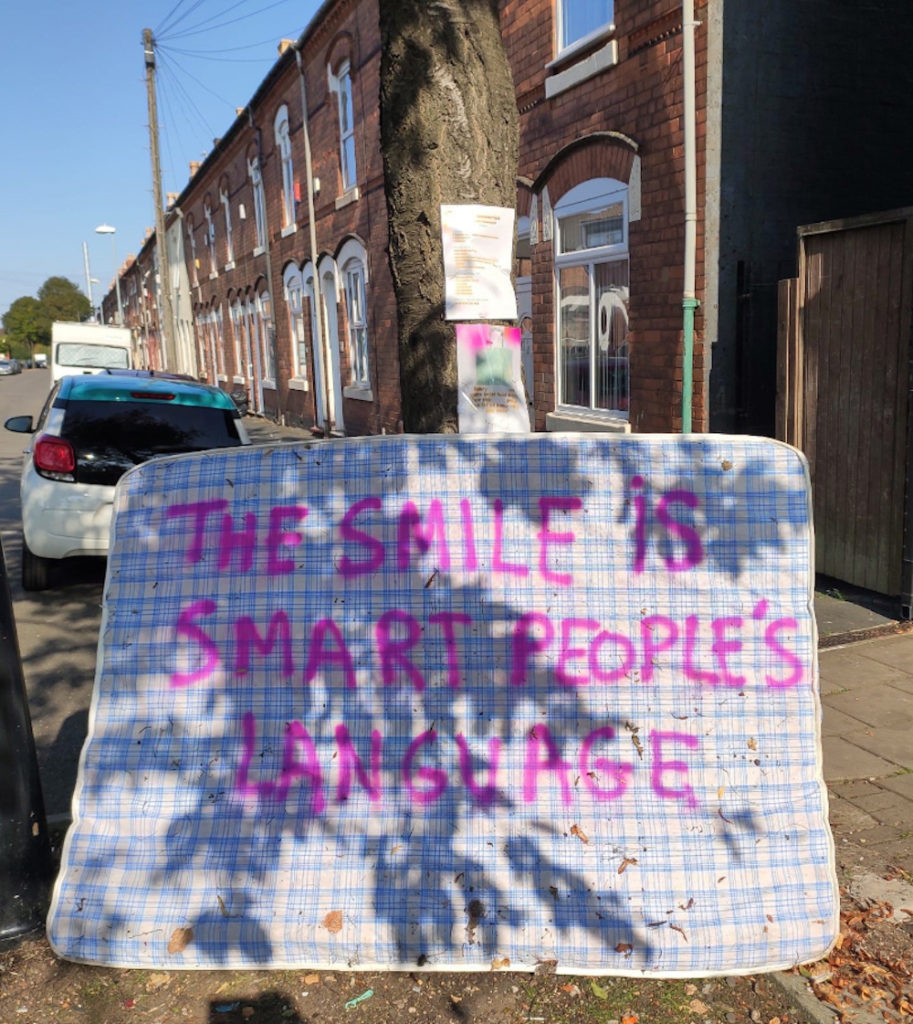 THE SMILE iS
SMART PEOPLE'S
LANGUAGE